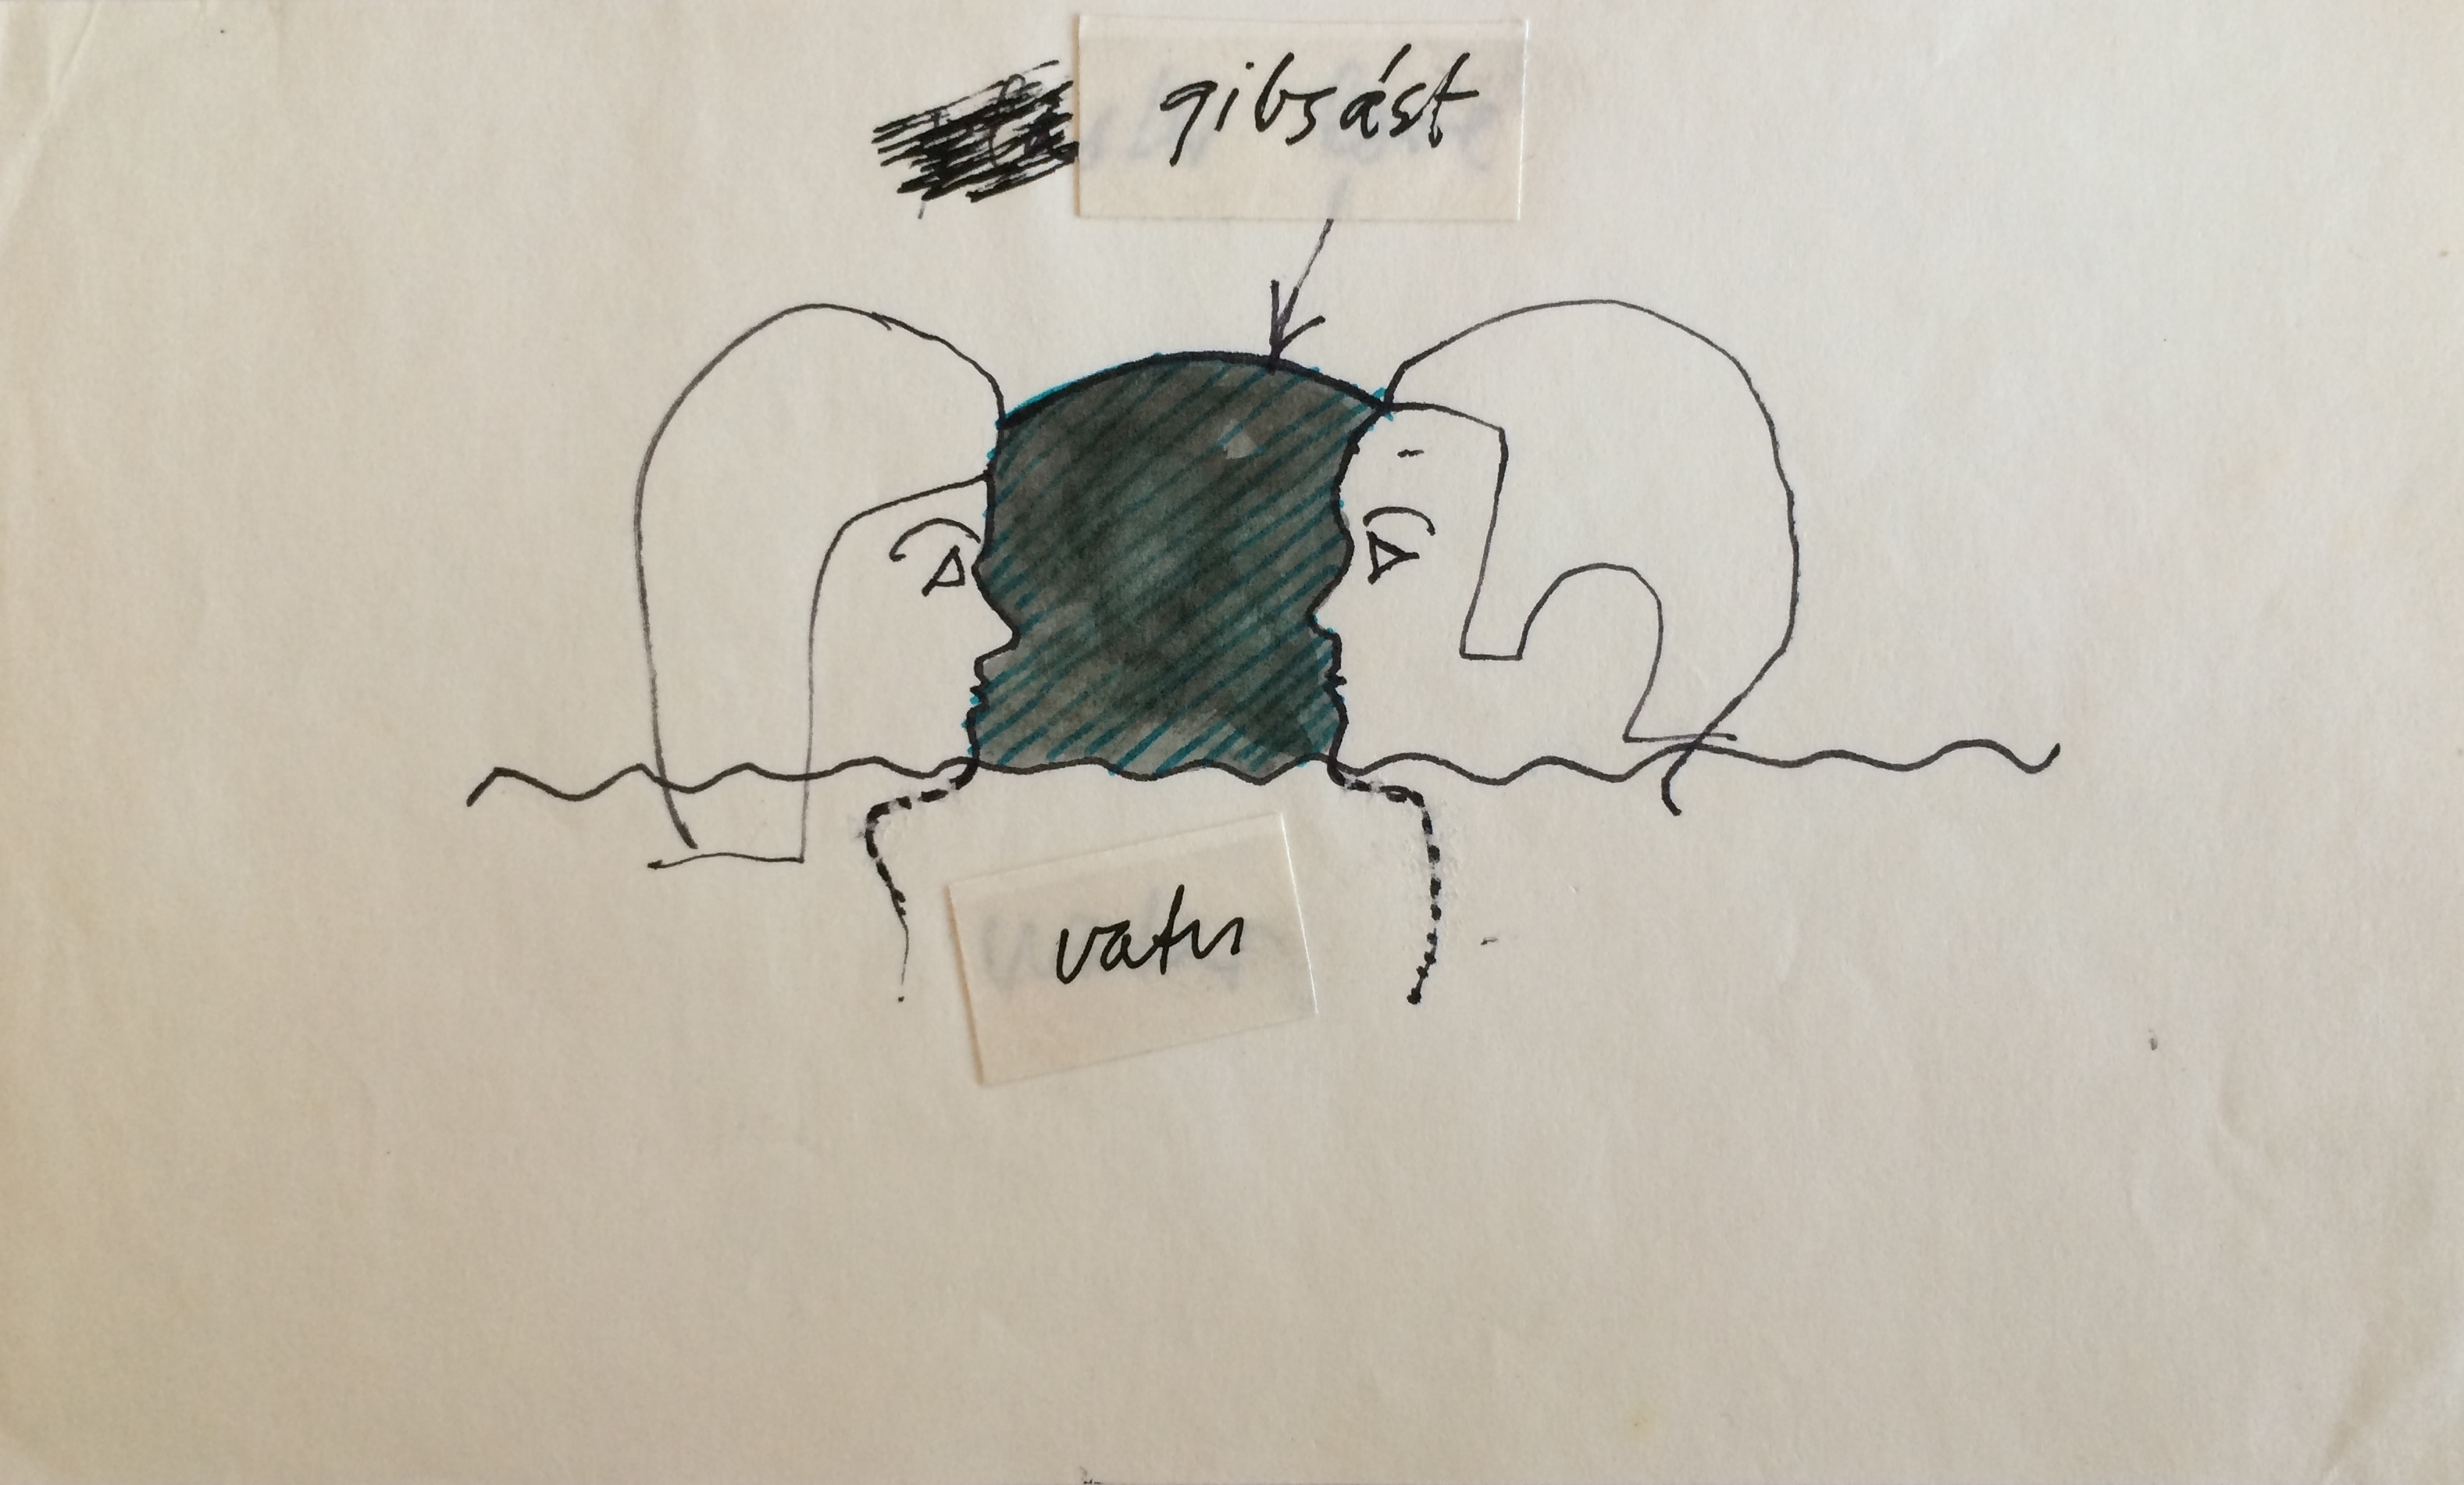 gibsást
vatn